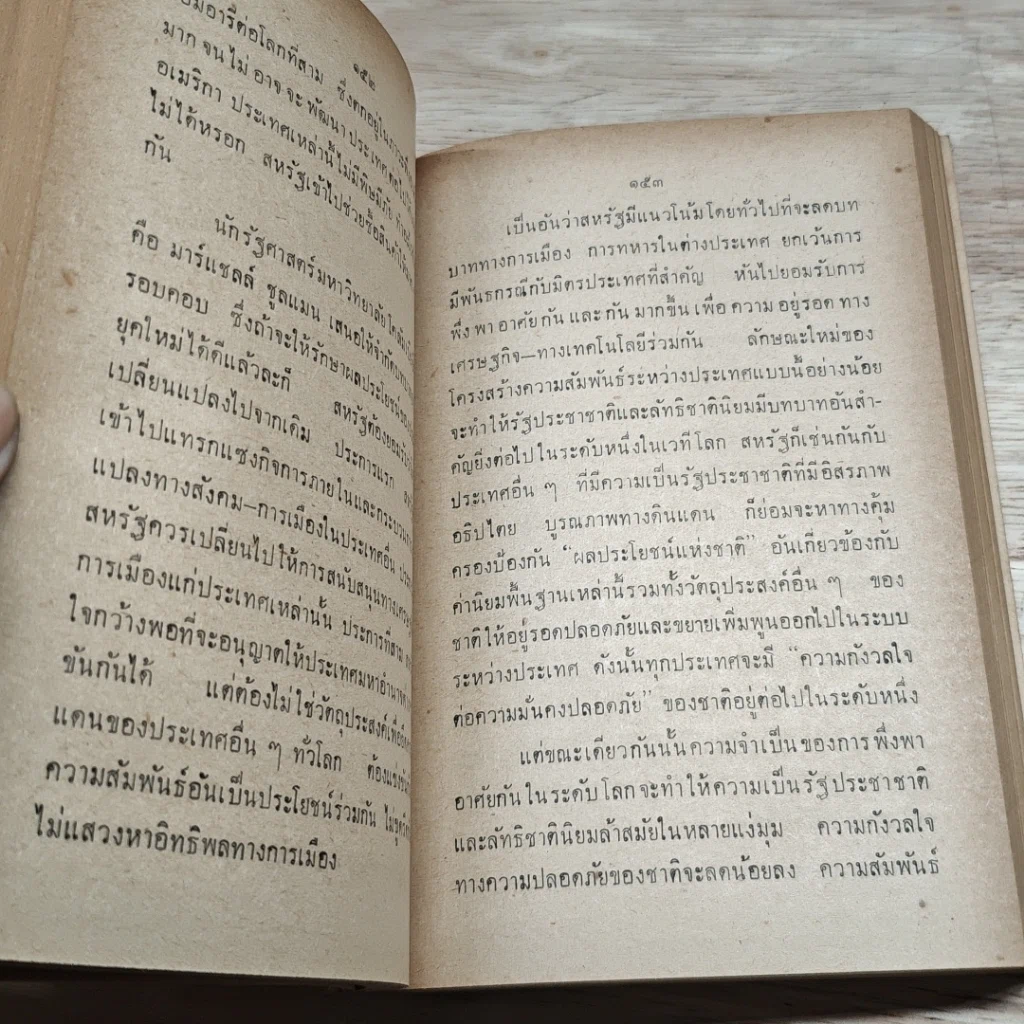 ๑๕๒
อมอารีต่อโลกที่สาม ซึ่งตกอยู่ใน
มาก จน ไม่ อาจ จะ พัฒนา ประเทศ ต่อไปได้
อเมริกา ประเทศเหล่านี้ไม่มีพิษมีภัย
ไม่ได้หรอก สหรัฐเข้าไปช่วยซื้อสินค้า
กัน
นักรัฐศาสตร์มหาวิทยาลัยโคลัมเบีย
คือ มาร์แชลล์ ชูลแมน เสนอให้จำกัด
รอบคอบ ซึ่งถ้าจะให้รักษาผลประโยชน์ของ
ยุคใหม่ได้ดีแล้วละก็ สหรัฐต้องยอมรับ
เปลี่ยนแปลงไปจากเดิม ประการแรก
เข้าไปแทรกแซงกิจการภายในและกระบวนการ
แปลงทางสังคม—การเมืองในประเทศอื่น
สหรัฐควรเปลี่ยนไปให้การสนับสนุนทาง
การเมืองแก่ประเทศเหล่านั้น ประการที่สาม
ใจกว้างพอที่จะอนุญาตให้ประเทศมหาอำนาจ
ขันกันได้ แต่ต้องไม่ใช่วัตถุประสงค์เพื่อ
แดนของประเทศอื่น ๆ ทั่วโลก ต้องแข่งขัน
ความสัมพันธ์อันเป็นประโยชน์ร่วมกัน
ไม่แสวงหาอิทธิพลทางการเมือง
๑๕๓
เป็นอันว่าสหรัฐมีแนวโน้มโดยทั่วไปที่จะลดบท
บาททางการเมือง การทหารในต่างประเทศ ยกเว้นการ
มีพันธกรณีกับมิตรประเทศที่สำคัญ หันไปยอมรับการ
พึ่ง พา อาศัย กัน และ กัน มากขึ้น เพื่อ ความ อยู่รอด ทาง
เศรษฐกิจ—ทางเทคโนโลยีร่วมกัน ลักษณะใหม่ของ
โครงสร้างความสัมพันธ์ระหว่างประเทศแบบนี้อย่างน้อย
จะทำให้รัฐประชาชาติและลัทธิชาตินิยมมีบทบาทอันสำ-
คัญยิ่งต่อไปในระดับหนึ่งในเวทีโลก สหรัฐก็เช่นกันกับ
ประเทศอื่น ๆ ที่มีความเป็นรัฐประชาชาติที่มีอิสรภาพ
อธิปไตย บูรณภาพทางดินแดน ก็ย่อมจะหาทางคุ้ม
ครองป้องกัน “ผลประโยชน์แห่งชาติ” อันเกี่ยวข้องกับ
ค่านิยมพื้นฐานเหล่านี้รวมทั้งวัตถุประสงค์อื่น ๆ ของ
ชาติให้อยู่รอดปลอดภัยและขยายเพิ่มพูนออกไปในระบบ
ระหว่างประเทศ ดังนั้นทุกประเทศจะมี “ความกังวลใจ
ต่อความมั่นคงปลอดภัย” ของชาติอยู่ต่อไปในระดับหนึ่ง
แต่ขณะเดียวกันนั้นความจำเป็นของการพึ่งพา
อาศัยกันในระดับโลกจะทำให้ความเป็นรัฐประชาชาติ
และลัทธิชาตินิยมล้าสมัยในหลายแง่มุม ความกังวลใจ
ทางความปลอดภัยของชาติจะลดน้อยลง ความสัมพันธ์